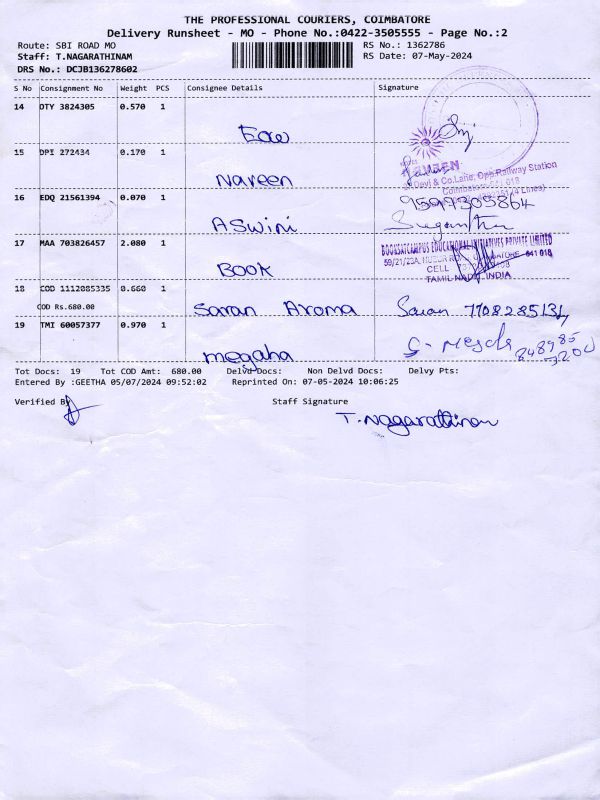 THE PROFESSIONAL COURIERS, COIMBATORE
Delivery Runsheet - MO - Phone No.:0422-3505555 - Page No.:2
Route: SBI ROAD MO RS No.: 1362786
Staff: T.NAGARATHINAM RS Date: 07-May-2024
DRS No.: DCJB136278602
S No Consignment No Weight PCS Consignee Details Signature
14 DTY 3824305 0.570 1
15 DPI 272434 0.170 1
Naveen
NAVEEN
Devi & Co.Lane, Opp.Railway Station
Coimbatore-641 018
16 EDQ 21561394 0.070 1 9597305864
Aswini
17 MAA 703826457 2.080 1
Book
BOOKSATCAMPUS EDUCATIONAL INITIATIVES PRIVATE LIMITED
TAMIL NADU, INDIA
18 COD 1112085335 0.660 1
COD Rs.680.00
Saran Aroma Saran
19 TMI 60057377 0.970 1
megaha
Tot Docs: 19 Tot COD Amt: 680.00 Delvd Docs: Non Delvd Docs: Delvy Pts:
Entered By :GEETHA 05/07/2024 09:52:02 Reprinted On: 07-05-2024 10:06:25
Verified By Staff Signature
T. Nagarathinam